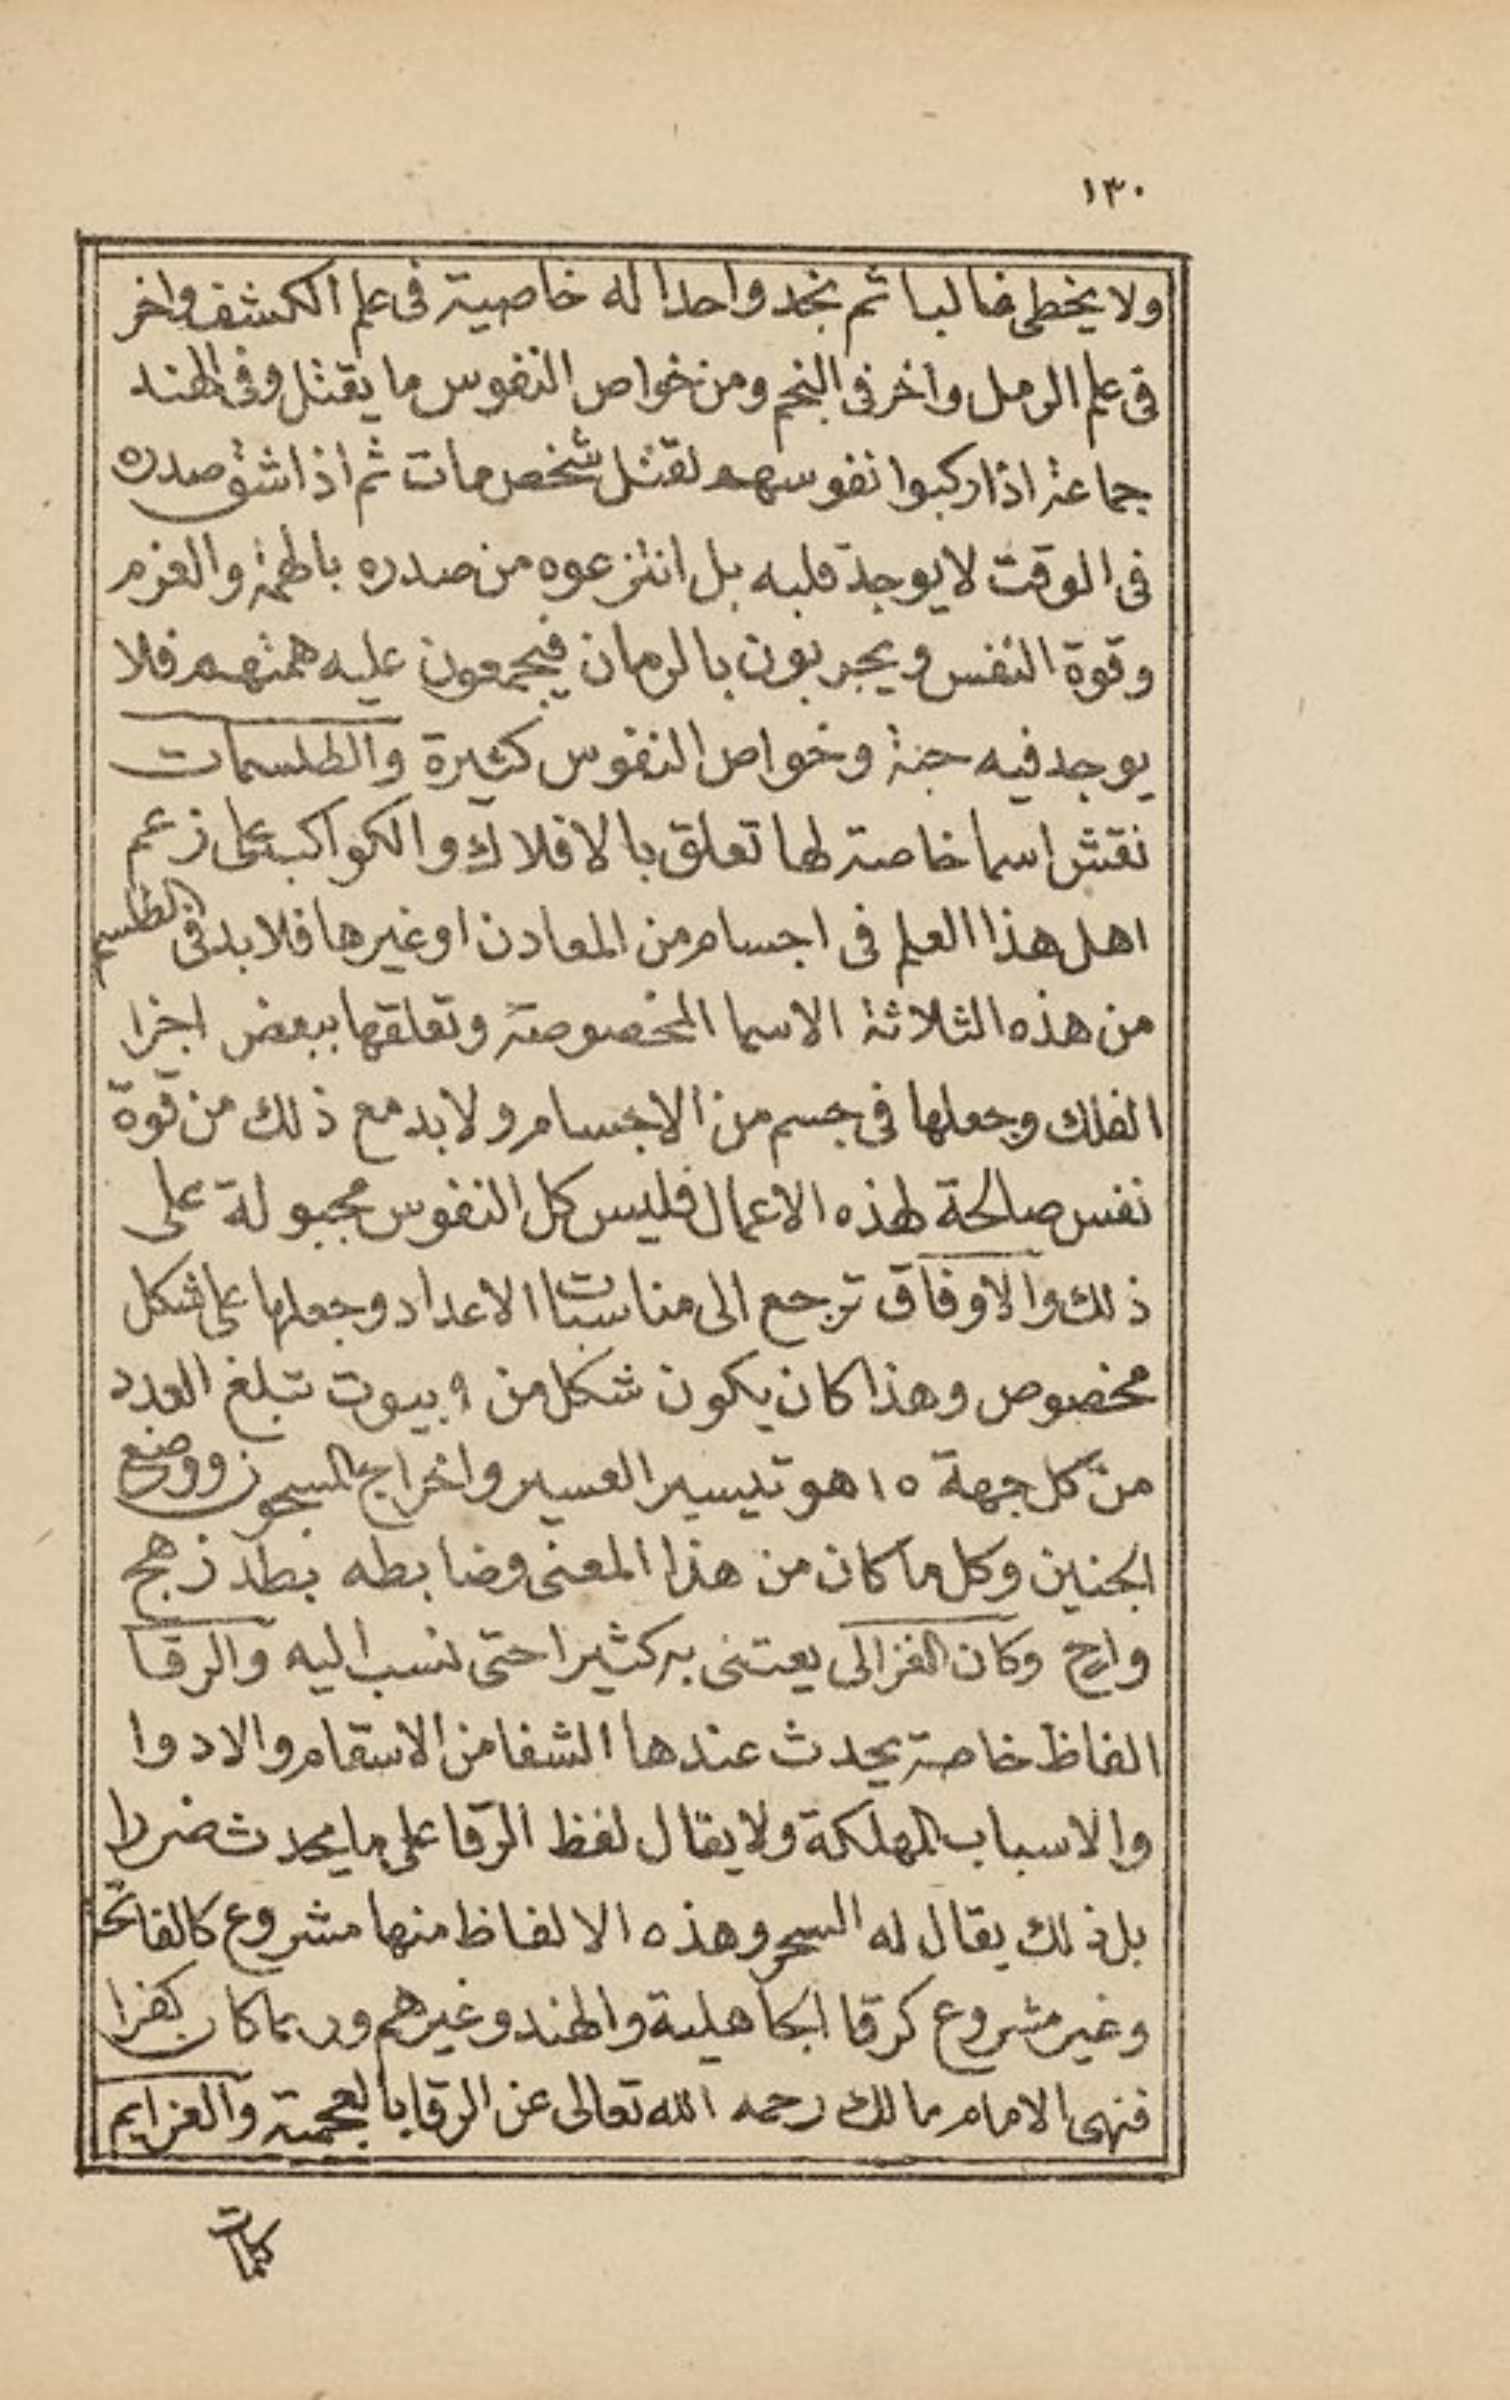 ١٣٠
ولا يخطى غالبا ثم نجد واحدا له خاصية فى علم الكشف واخر
فى علم الرمل واخر فى النجم ومن خواص النفوس ما يقتل وفى الهند
جماعة اذا ركبوا نفوسهم لقتل شخص مات ثم اذا شق صدره
فى الوقت لا يوجد قلبه بل انتزعوه من صدره بالهمة والعزم
وقوة النفس ويجربون بالرمان فيجمعون عليه همتهم فلا
يوجد فيه حبة وخواص النفوس كثيرة والطلسمات
نقش اسما خاصة لها تعلق بالافلاك والكواكب على زعم
اهل هذا العلم فى اجسام من المعادن او غيرها فلا بد فى الطلسم
من هذه الثلاثة الاسما المخصوصة وتعلقها ببعض اجزا
الفلك وجعلها فى جسم من الاجسام ولا بد مع ذلك من قوة
نفس صالحة لهذه الاعمال فليس كل النفوس مجبولة على
ذلك والاوفاق ترجع الى مناسبات الاعداد وجعلها على شكل
مخصوص وهذا كان يكون شكل من ٩ بيوت تبلغ العدد
من كل جهة ١٥ هو تيسير العسير واخراج المسجون ووضع
الجنين وكل ما كان من هذا المعنى وضابطه بطد زهج
واح وكان الغزالى يعتنى به كثيرا حتى نسب اليه والرقا
الفاظ خاصة يحدث عندها الشفا من الاسقام والادوا
والاسباب المهلكة ولا يقال لفظ الرقا على ما يحدث ضررا
بل ذلك يقال له السحر وهذه الالفاظ منها مشروع كالفاتحة
وغير مشروع كرقا الجاهلية والهند وغيرهم وربما كان كفرا
فنهى الامام مالك رحمه الله تعالى عن الرقا بالعجمية والعزايم
كلمات